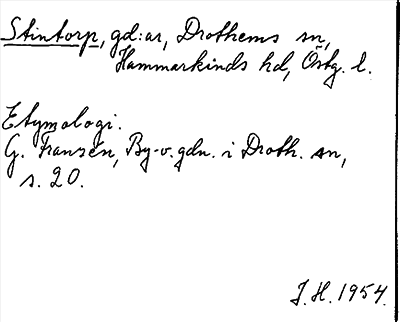 Stintorp, gd:ar, Drothems sn,
Hammarkinds hd, Östg. l.
Etymologi.
G. Fransén, By-o. gdn. i Droth. sn,
s. 20.
J. H. 1954.